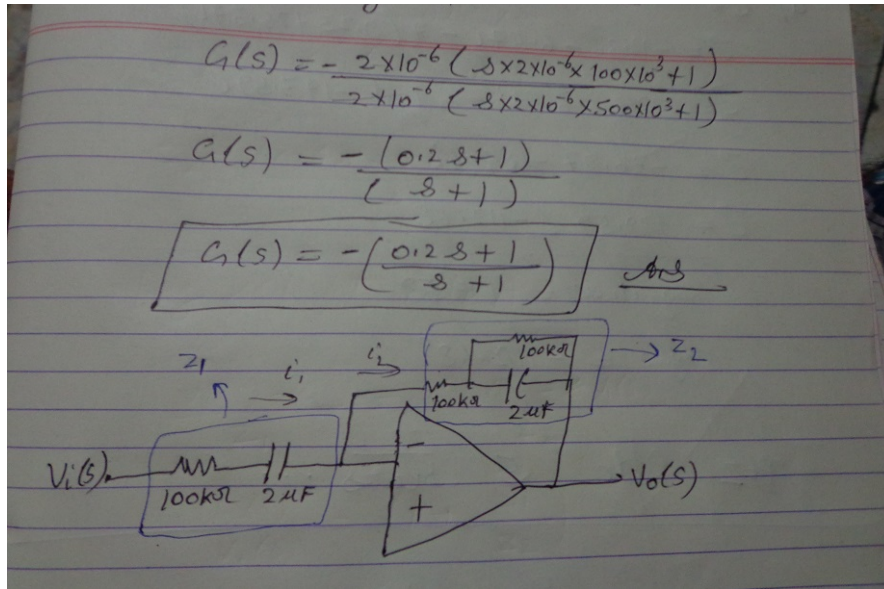 G(S) = - 2×10⁻⁶ ( s×2×10⁻⁶×100×10³+1) / 2×10⁻⁶ ( s×2×10⁻⁶×500×10³+1)
G(S) = -(0.2 s+1) / ( s+1)
G(S) = -(0.2 s+1 / s+1) Ans
Z1 i1 i2 100kΩ → Z2
100kΩ 2μF
Vi(s) 100kΩ 2μF - + Vo(s)